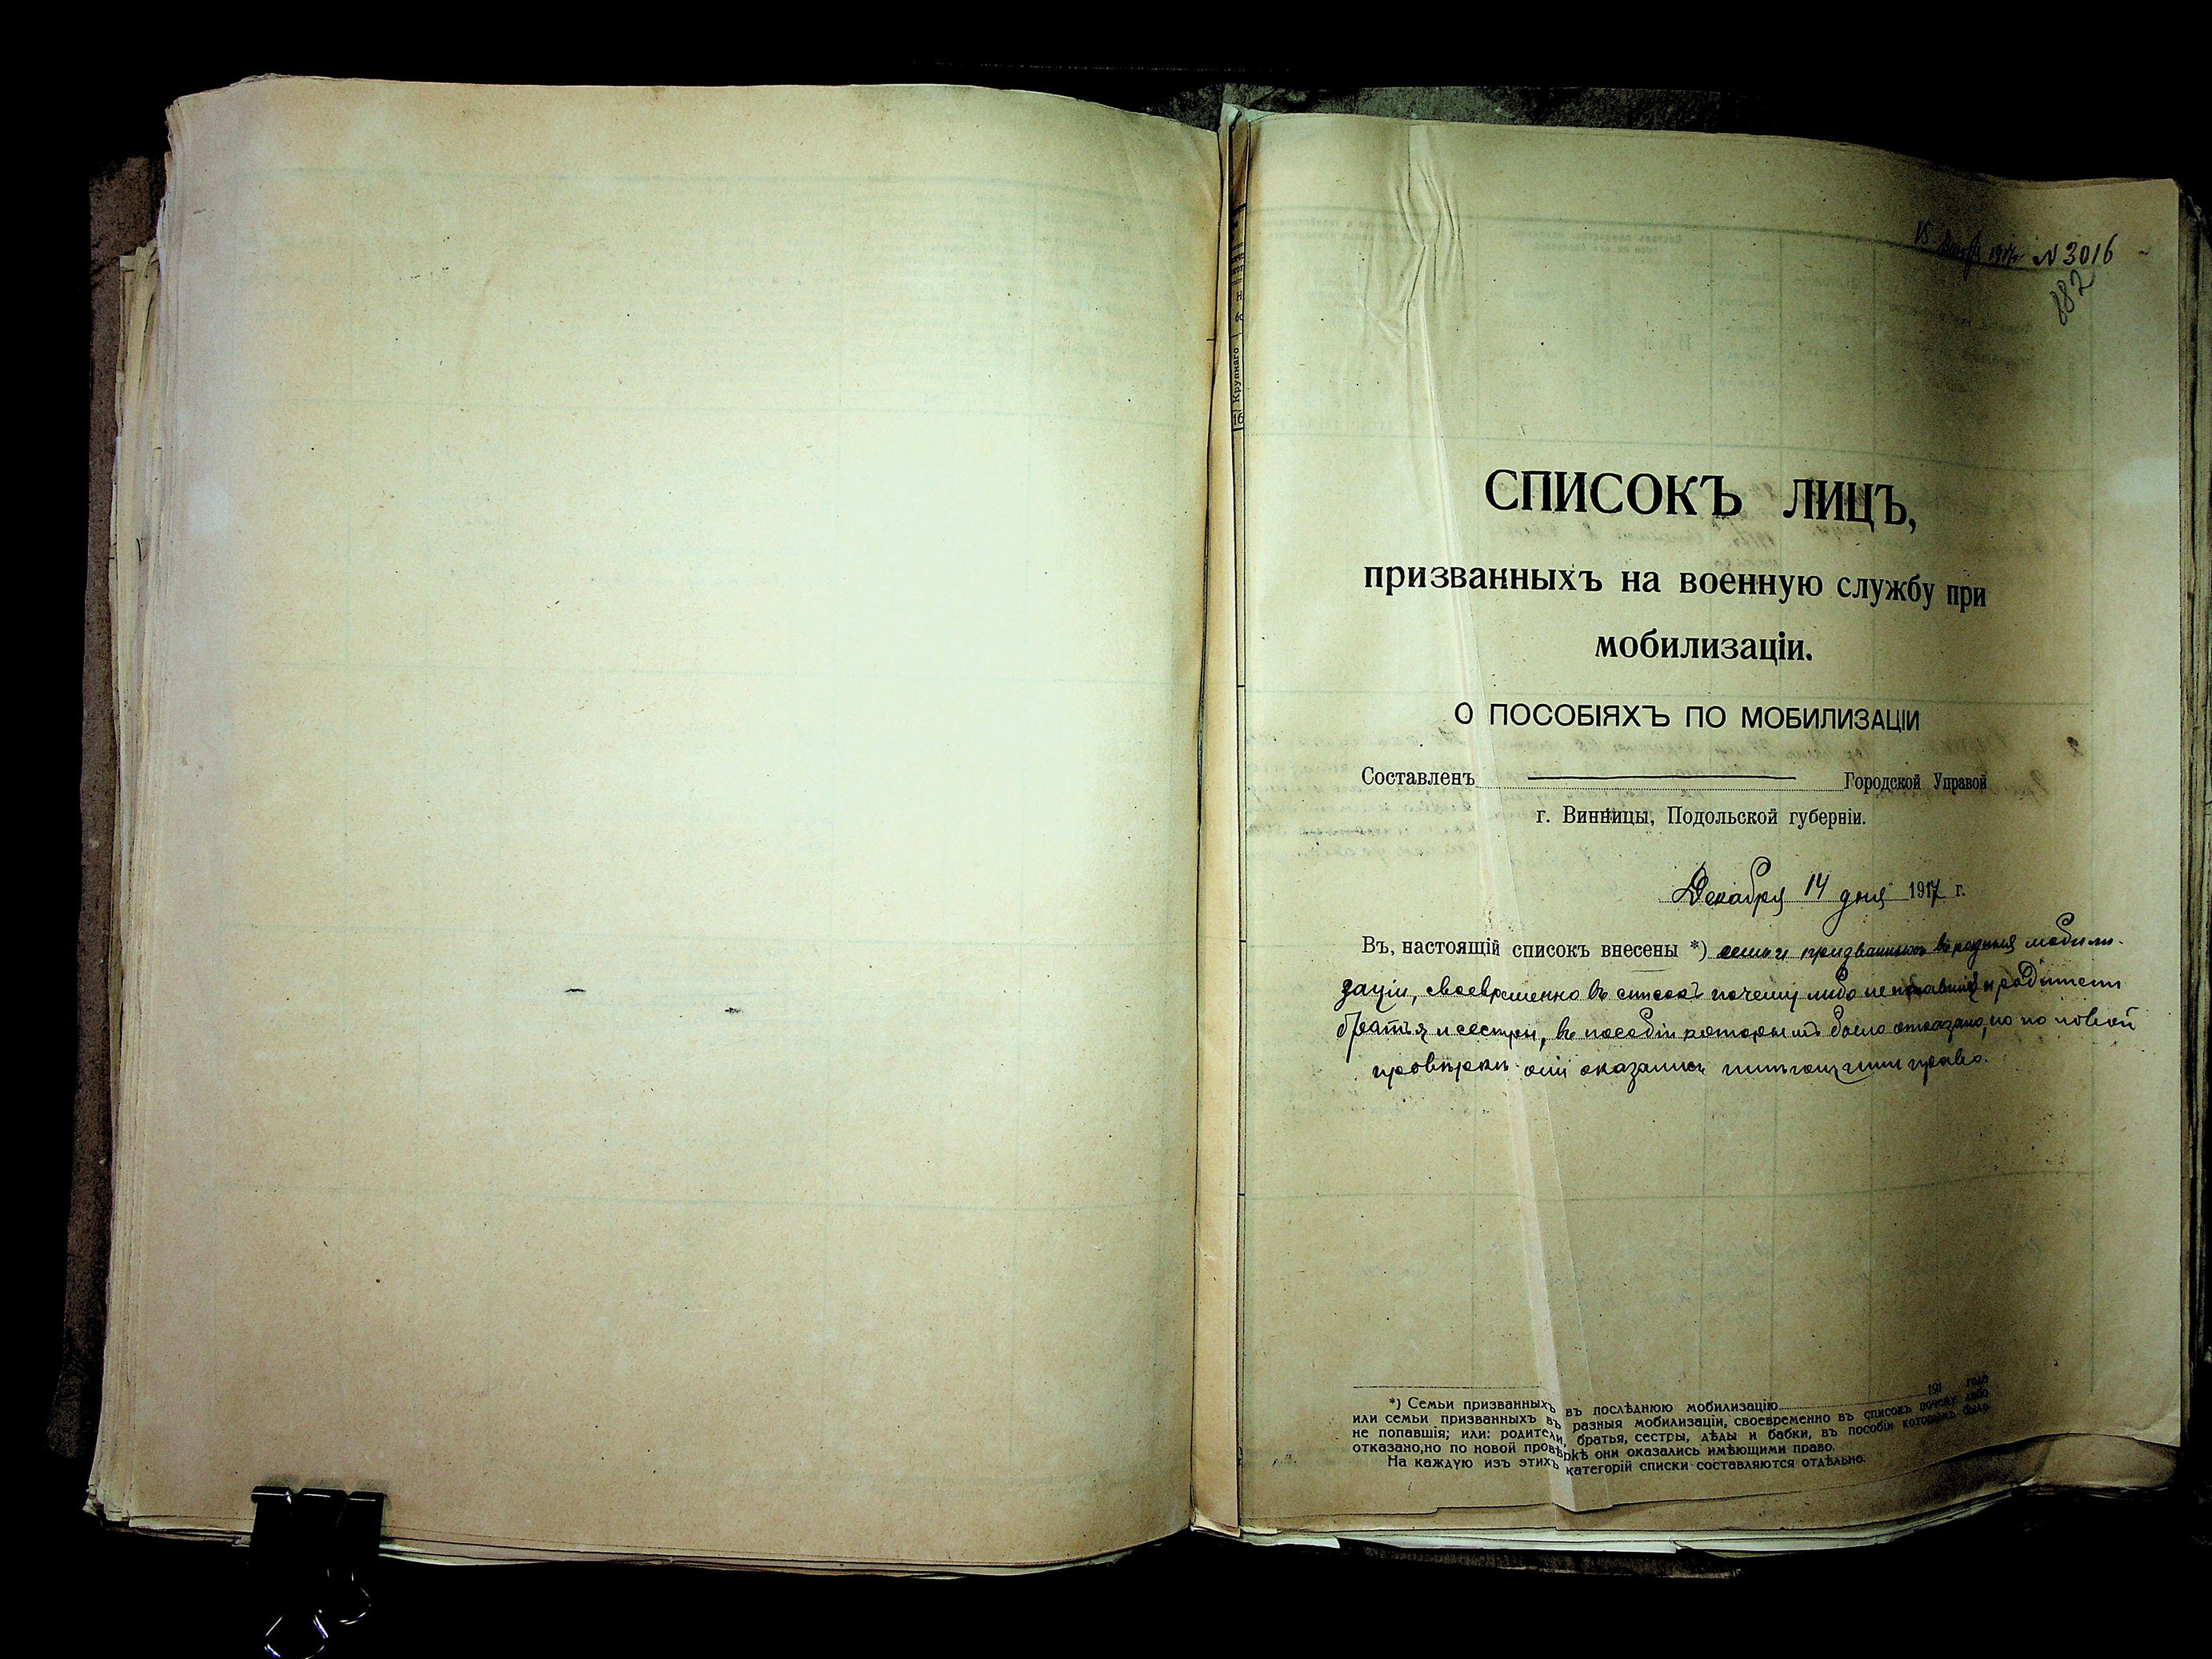 15 Декабря 1917 г. N 3016
882
Крупнаго
СПИСОКЪ ЛИЦЪ,
призванныхъ на военную службу при
мобилизаціи.
О ПОСОБІЯХЪ ПО МОБИЛИЗАЦІИ
Составленъ Городской Управой
г. Винницы, Подольской губерніи.
Декабря 14 дня 1917 г.
Въ, настоящій списокъ внесены *) семьи призванныхъ въ разныя мобили-
заціи, своевременно въ списокъ почему либо не попавшія и родители
братья и сестры, въ пособіи которымъ было отказано, но по новой
провѣркѣ они оказались имѣющими право.
*) Семьи призванныхъ въ послѣднюю мобилизацію 191 года
или семьи призванныхъ въ разныя мобилизаціи, своевременно въ списокъ почему либо
не попавшія; или: родители, братья, сестры, дѣды и бабки, въ пособіи которымъ было
отказано,но по новой провѣркѣ они оказались имѣющими право.
На каждую изъ этихъ категорій списки составляются отдѣльно.